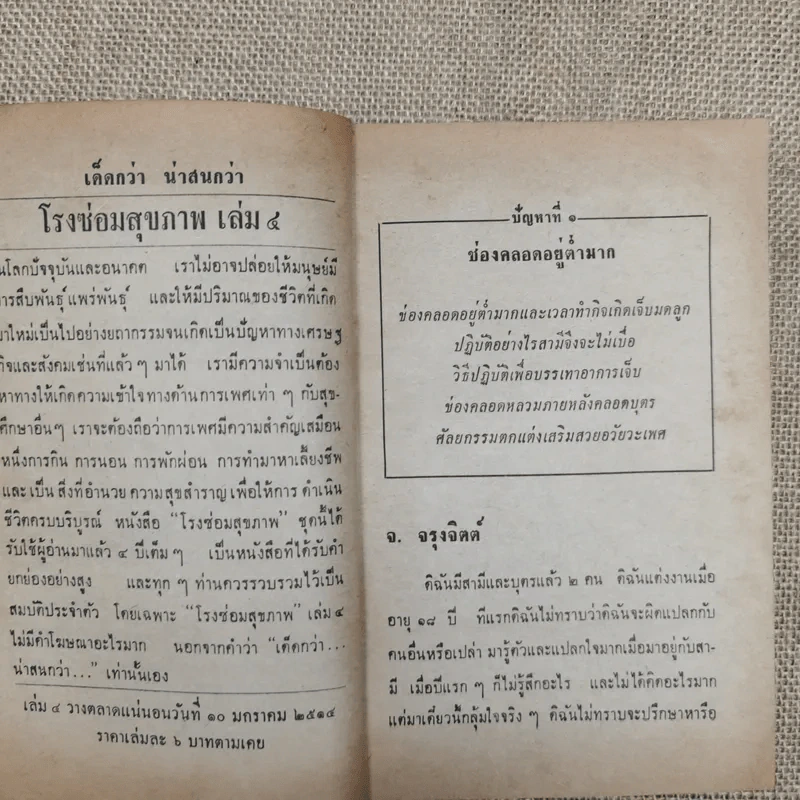 เด็ดกว่า น่าสนกว่า
โรงซ่อมสุขภาพ เล่ม ๔
นโลกปัจจุบันและอนาคต เราไม่อาจปล่อยให้มนุษย์มี
การสืบพันธุ์แพร่พันธุ์ และให้มีปริมาณของชีวิตที่เกิด
มาใหม่เป็นไปอย่างยถากรรมจนเกิดเป็นปัญหาทางเศรษฐ
กิจและสังคมเช่นที่แล้ว ๆ มาได้ เรามีความจำเป็นต้อง
หาทางให้เกิดความเข้าใจทางด้านการเพศเท่า ๆ กับสุข-
ศึกษาอื่นๆ เราจะต้องถือว่าการเพศมีความสำคัญเสมือน
หนึ่งการกิน การนอน การพักผ่อน การทำมาหาเลี้ยงชีพ
และ เป็น สิ่งที่อำนวย ความสุขสำราญ เพื่อให้การ ดำเนิน
ชีวิตครบบริบูรณ์ หนังสือ “โรงซ่อมสุขภาพ” ชุดนี้ได้
รับใช้ผู้อ่านมาแล้ว ๔ ปีเต็ม ๆ เป็นหนังสือที่ได้รับคำ
ยกย่องอย่างสูง และทุก ๆ ท่านควรรวบรวมไว้เป็น
สมบัติประจำตัว โดยเฉพาะ “โรงซ่อมสุขภาพ” เล่ม ๔
ไม่มีคำโฆษณาอะไรมาก นอกจากคำว่า “เด็ดกว่า...
น่าสนกว่า...” เท่านั้นเอง
เล่ม ๔ วางตลาดแน่นอนวันที่ ๑๐ มกราคม ๒๕๑๔
ราคาเล่มละ ๖ บาทตามเคย
ปัญหาที่ ๑
ช่องคลอดอยู่ต่ำมาก
ช่องคลอดอยู่ต่ำมากและเวลาทำกิจเกิดเจ็บมดลูก
ปฏิบัติอย่างไรสามีจึงจะไม่เบื่อ
วิธีปฏิบัติเพื่อบรรเทาอาการเจ็บ
ช่องคลอดหลวมภายหลังคลอดบุตร
ศัลยกรรมตกแต่งเสริมสวยอวัยวะเพศ
จ. จรุงจิตต์
ดิฉันมีสามีและบุตรแล้ว ๒ คน ดิฉันแต่งงานเมื่อ
อายุ ๑๘ ปี ทีแรกดิฉันไม่ทราบว่าดิฉันจะผิดแปลกกับ
คนอื่นหรือเปล่า มารู้ตัวและแปลกใจมากเมื่อมาอยู่กับสา-
มี เมื่อปีแรก ๆ ก็ไม่รู้สึกอะไร และไม่ได้คิดอะไรมาก
แต่มาเดี๋ยวนี้กลุ้มใจจริง ๆ ดิฉันไม่ทราบจะปรึกษาหารือ